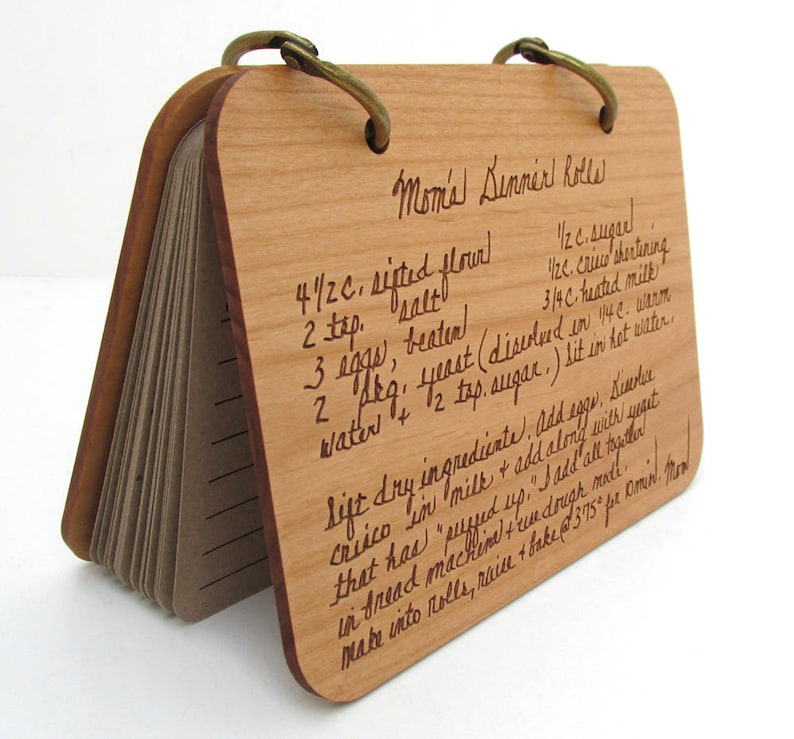 Mom's Dinner Rolls
4 1/2 c. sifted flour 1/2 c. sugar
2 tsp. salt 1/2 c. crisco shortening
3 eggs, beaten 3/4 c. heated milk
2 pkg. yeast (disolved in 1/4 c. warm
water + 2 tsp. sugar.) Sit in hot water.
Sift dry ingredients. Add eggs. Dissolve
crisco in milk + add along with yeast
that has "puffed up." I add all together
in bread machine + use dough mode.
Make into rolls, raise + bake @ 375° for 10 min. Mom